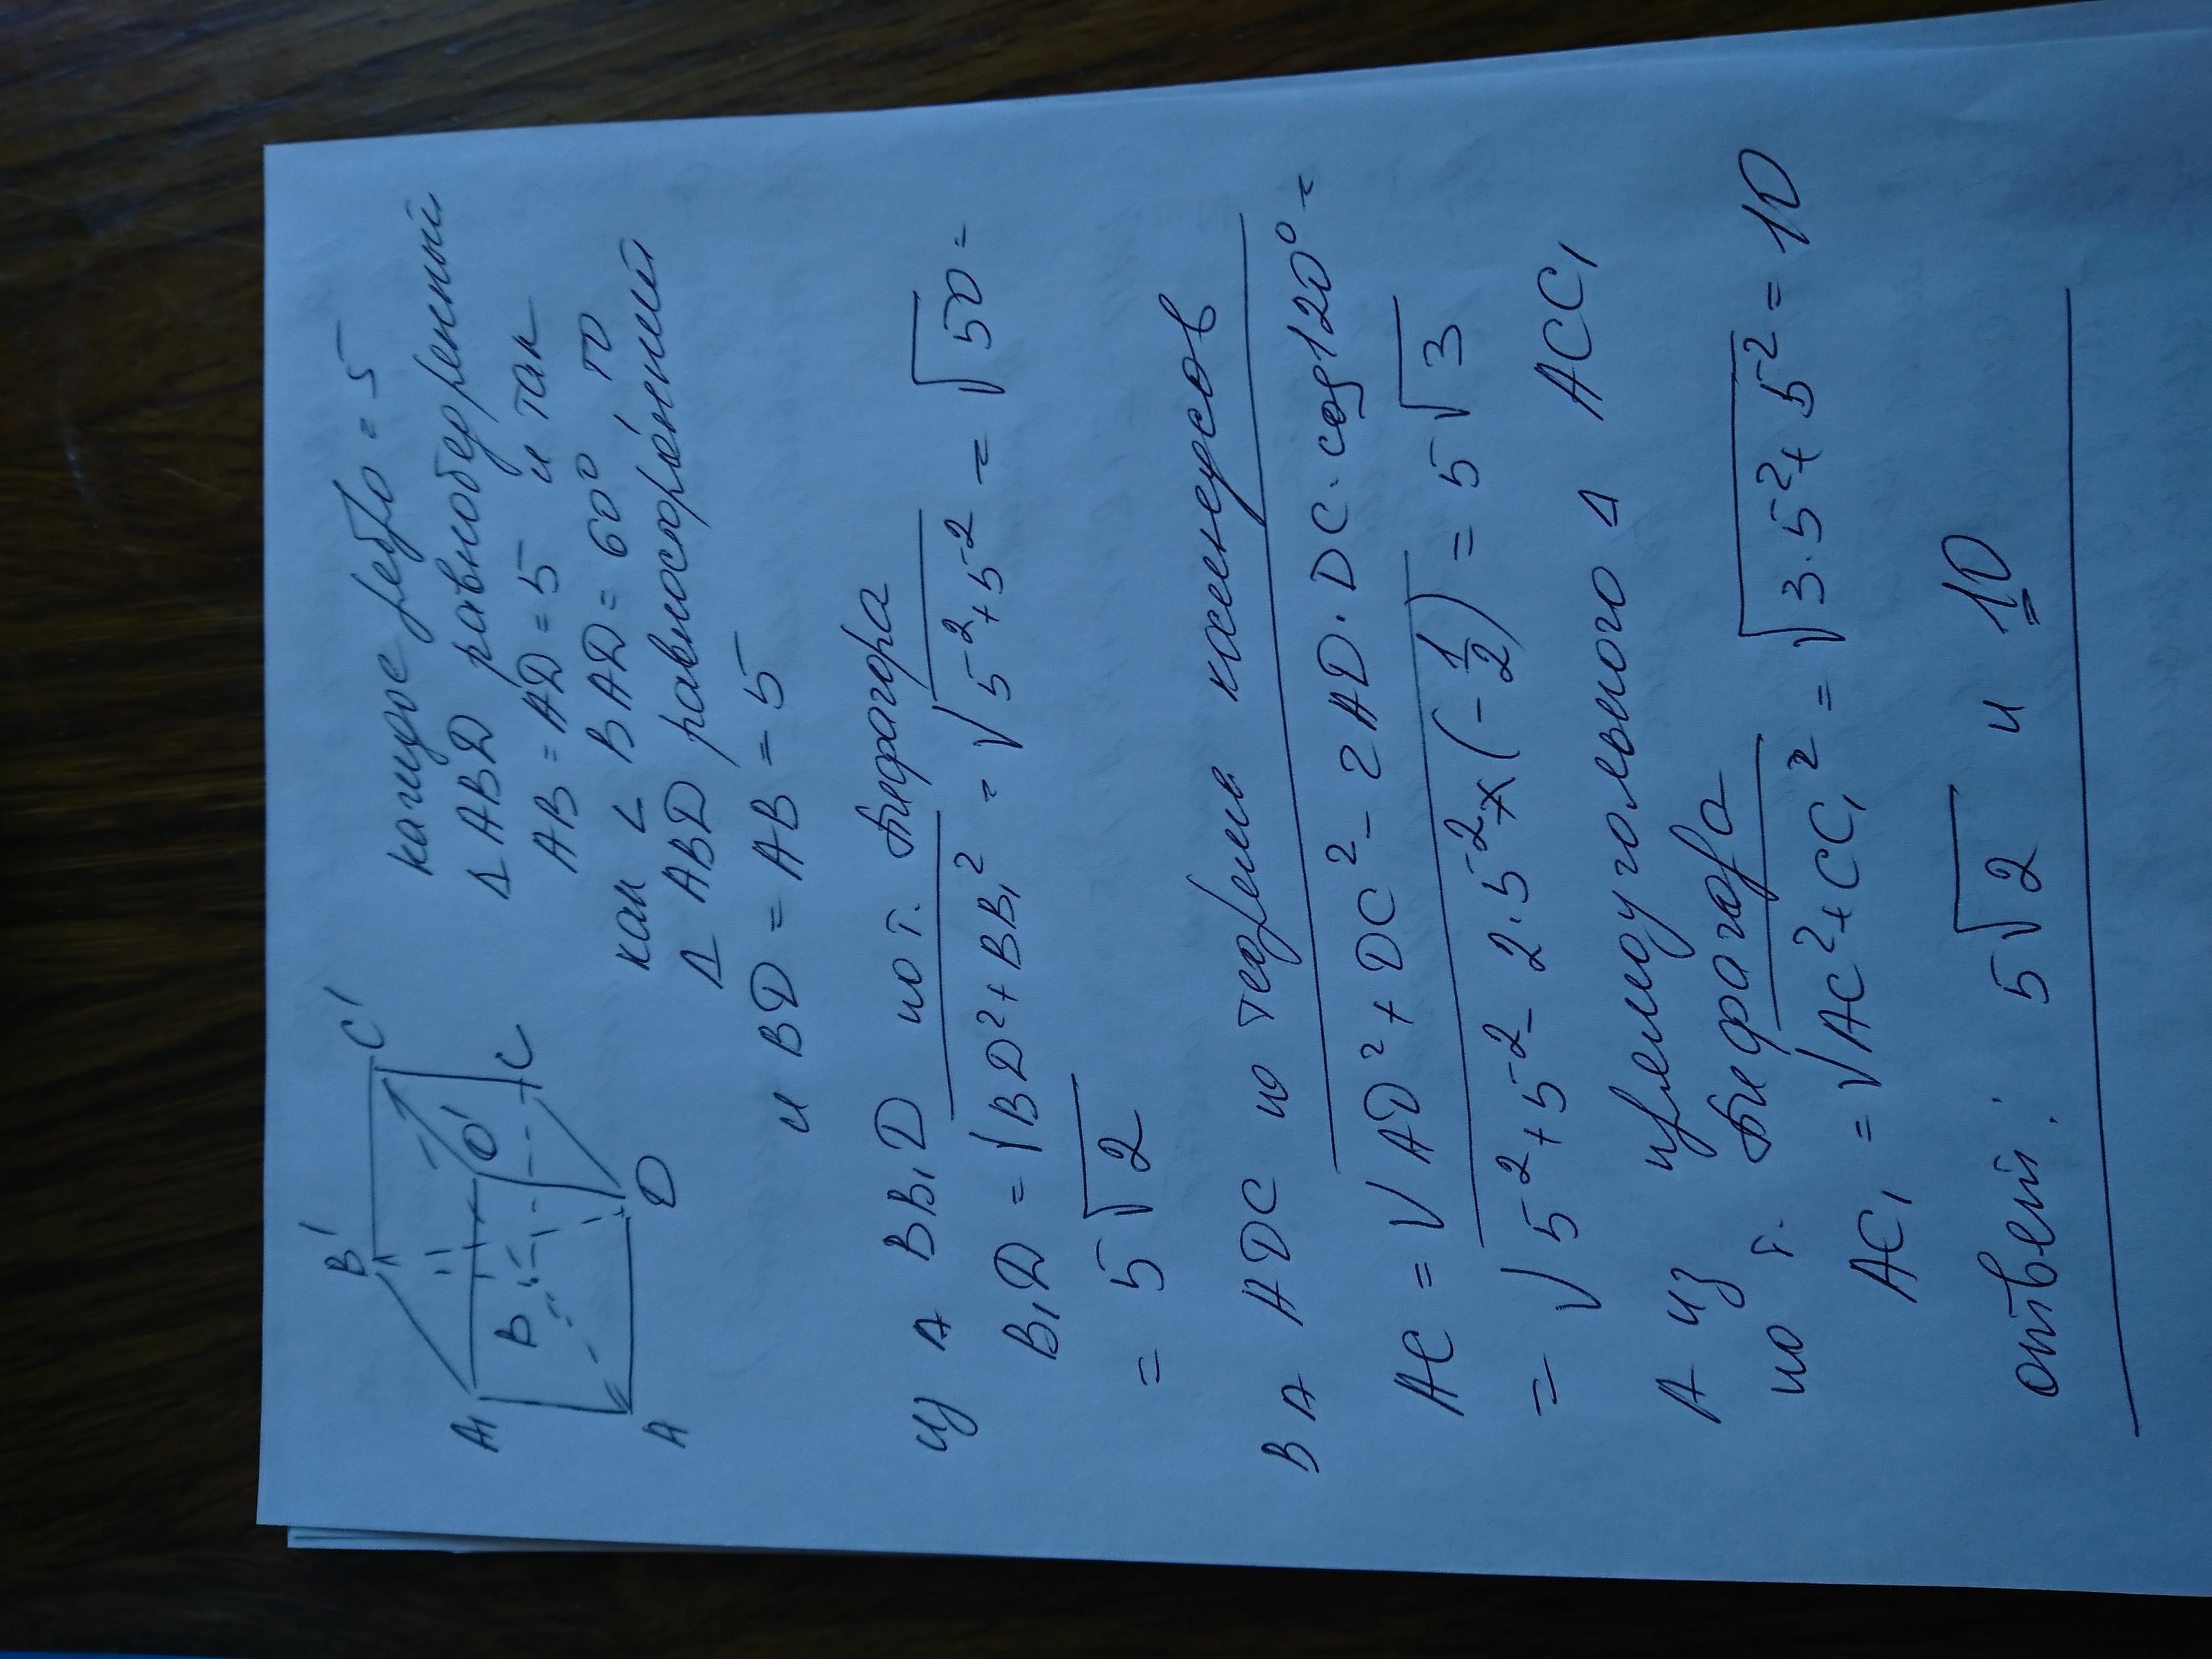 B' C'
A1 O'
B C
A D
каждое ребро = 5
Δ ABD равнобедренный
AB = AD = 5 и так
как ∠ BAD = 60° то
Δ ABD равносторонний
и BD = AB = 5
из Δ BB₁D по т. Пифагора
B₁D = √BD² + BB₁² = √5² + 5² = √50 =
= 5√2
в Δ ADC по теореме косинусов
AC = √AD² + DC² - 2AD · DC · cos120° =
= √5² + 5² - 2 · 5² × (-1/2) = 5√3
Δ из прямоугольного Δ ACC₁
по т. Пифагора
AC₁ = √AC² + CC₁² = √3·5² + 5² = 10
ответ: 5√2 и 10